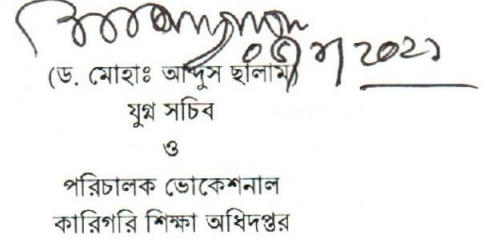 (ড. মোহাঃ আব্দুস ছালাম)
যুগ্ম সচিব
ও
পরিচালক ভোকেশনাল
কারিগরি শিক্ষা অধিদপ্তর